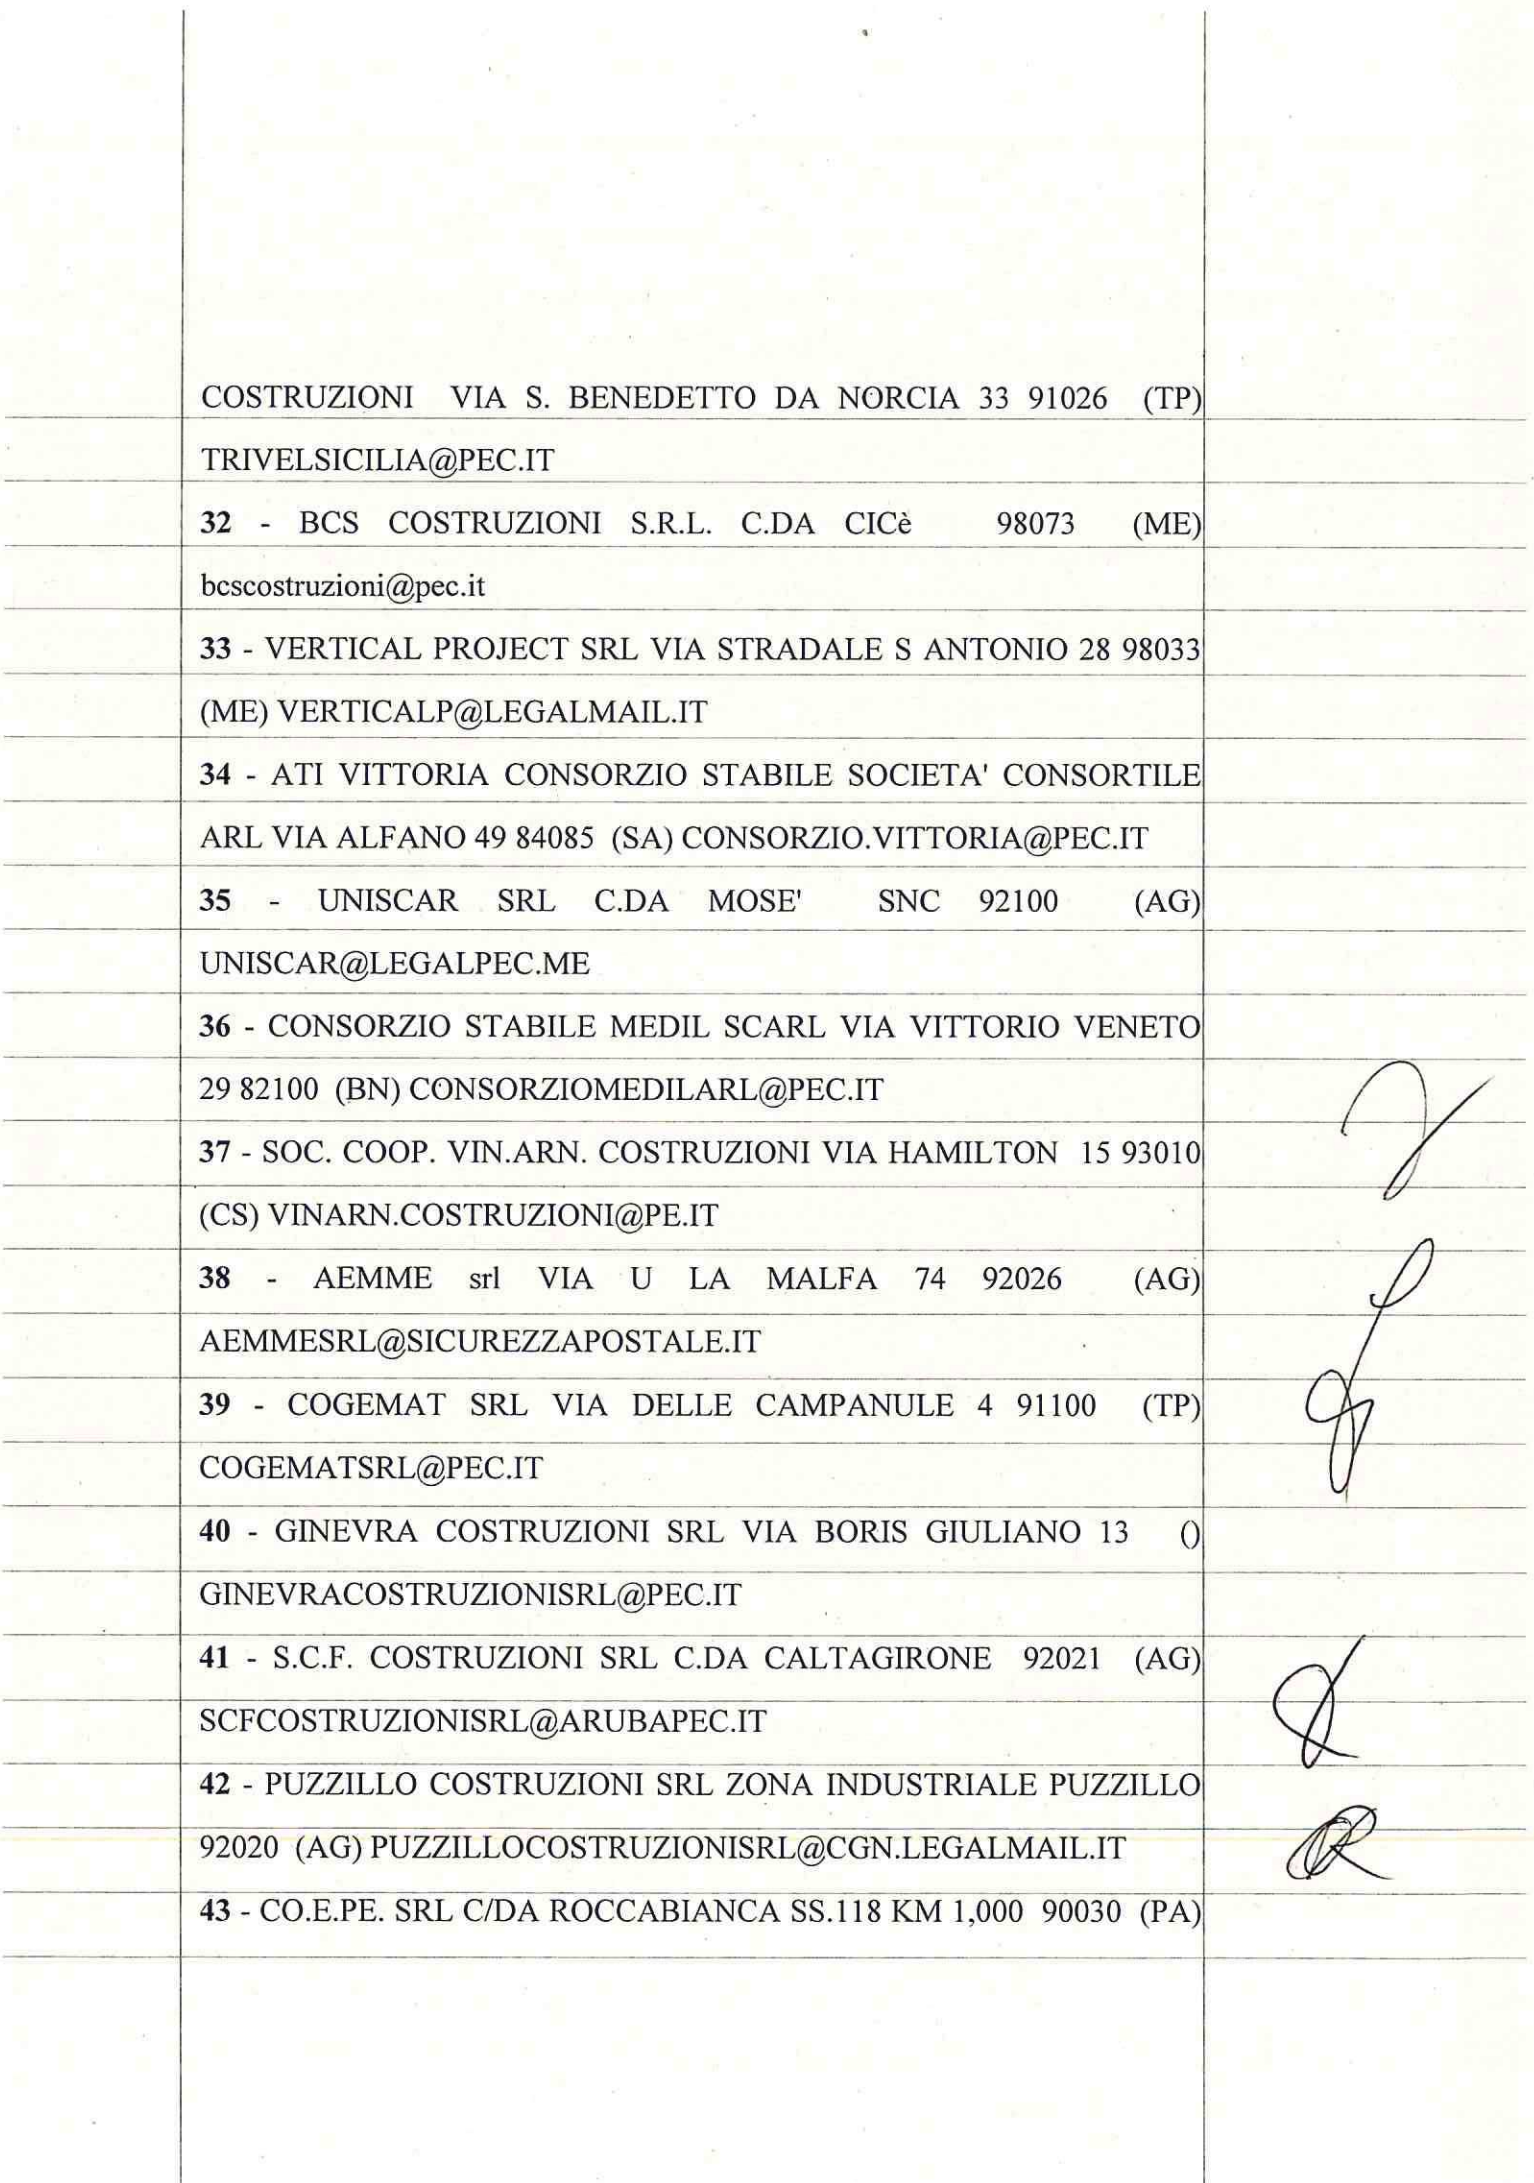 COSTRUZIONI VIA S. BENEDETTO DA NORCIA 33 91026 (TP)
TRIVELSICILIA@PEC.IT
32 - BCS COSTRUZIONI S.R.L. C.DA CICè 98073 (ME)
bcscostruzioni@pec.it
33 - VERTICAL PROJECT SRL VIA STRADALE S ANTONIO 28 98033
(ME) VERTICALP@LEGALMAIL.IT
34 - ATI VITTORIA CONSORZIO STABILE SOCIETA' CONSORTILE
ARL VIA ALFANO 49 84085 (SA) CONSORZIO.VITTORIA@PEC.IT
35 - UNISCAR SRL C.DA MOSE' SNC 92100 (AG)
UNISCAR@LEGALPEC.ME
36 - CONSORZIO STABILE MEDIL SCARL VIA VITTORIO VENETO
29 82100 (BN) CONSORZIOMEDILARL@PEC.IT
37 - SOC. COOP. VIN.ARN. COSTRUZIONI VIA HAMILTON 15 93010
(CS) VINARN.COSTRUZIONI@PE.IT
38 - AEMME srl VIA U LA MALFA 74 92026 (AG)
AEMMESRL@SICUREZZAPOSTALE.IT
39 - COGEMAT SRL VIA DELLE CAMPANULE 4 91100 (TP)
COGEMATSRL@PEC.IT
40 - GINEVRA COSTRUZIONI SRL VIA BORIS GIULIANO 13 ()
GINEVRACOSTRUZIONISRL@PEC.IT
41 - S.C.F. COSTRUZIONI SRL C.DA CALTAGIRONE 92021 (AG)
SCFCOSTRUZIONISRL@ARUBAPEC.IT
42 - PUZZILLO COSTRUZIONI SRL ZONA INDUSTRIALE PUZZILLO
92020 (AG) PUZZILLOCOSTRUZIONISRL@CGN.LEGALMAIL.IT
43 - CO.E.PE. SRL C/DA ROCCABIANCA SS.118 KM 1,000 90030 (PA)